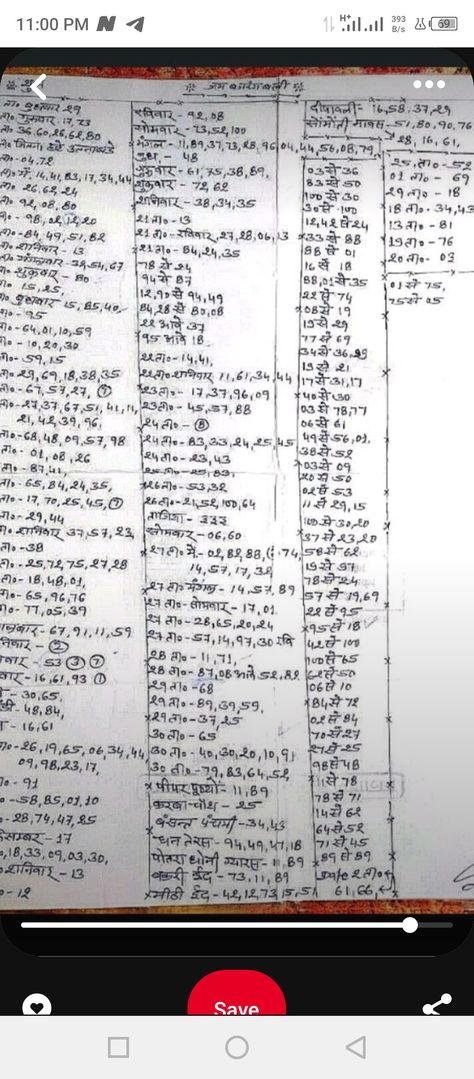 11:00 PM
H+
393 B/s
69
जय बजरंगबली
ता० बुधवार 29
ता० गुरुवार - 17, 23
ता० - 36, 60, 26, 62, 80
ता० - 04, 72
ता० में - 14, 41, 83, 17, 34, 44
ता० 26, 62, 24
ता० - 92, 08, 80
ता० - 98, 02, 12, 20
ता० - 84, 49, 51, 82
ता० शनिवार - 13
ता० मंगलवार - 78, 54, 67
ता० शुक्रवार - 80
ता० 15, 25,
ता० बुधवार 15, 85, 40
ता० - 95
ता० - 64, 01, 10, 59
ता० - 10, 20, 30
ता० - 59, 15
ता० 29, 69, 18, 38, 35
ता० - 67, 57, 27, 7
ता० - 27, 37, 67, 51, 41, 11,
21, 42, 39, 96,
ता० - 68, 48, 09, 57, 98
ता० - 01, 08, 26
ता० - 87, 41,
ता० - 65, 84, 24, 35,
ता० - 17, 70, 25, 45, 7
ता० - 29, 44
ता० शनिवार 37, 57, 23,
ता० - 38
ता० - 25, 72, 75, 27, 28
ता० - 18, 48, 01,
ता० - 65, 96, 76
ता० - 77, 05, 39
67, 91, 11, 59
2
53 3 7
16, 61, 93 1
30, 65,
48, 84,
16, 61
ता० - 26, 19, 65, 06, 34, 44
09, 98, 23, 17,
ता० - 91
ता० - 58, 85, 01, 10
ता० - 28, 74, 47, 25
दिसम्बर - 17
18, 33, 09, 03, 30,
शनिवार - 13
ता० - 12
रविवार - 92, 08
सोमवार - 73, 52, 100
मंगल - 11, 89, 37, 73, 28, 96, 04, 44, 56, 08, 79,
बुध - 48
गुरुवार - 61, 75, 38, 89,
शुक्रवार - 72, 62
शनिवार - 38, 34, 35
21 ता० - 13
21 ता० - रविवार, 27, 28, 06, 13
21 ता० - 84, 24, 35
78 से 24
94 से 87
12, 90 से 94, 49
84, 28 से 80, 08
22 आवे 37
95 आवे 18
22 ता० - 14, 41,
22 ता० शनिवार 11, 61, 34, 44
23 ता० - 17, 37, 96, 09
23 ता० - 45, 57, 88
24 ता० - 8
24 ता० - 83, 33, 24, 25, 45
24 ता० - 23, 43
25 ता० - 25, 83,
26 ता० - 53, 32
26 ता० - 21, 52, 100, 64
ताजिया - 333
सोमवार - 06, 60
27 ता० में - 02, 82, 88, 74,
14, 57, 17, 32
27 ता० मंगल - 14, 57, 89
27 ता० - सोमवार - 17, 01
27 ता० - 28, 65, 20, 24
27 ता० - 57, 14, 97, 30 रवि
28 ता० - 11, 71,
28 ता० - 87, 08 आवे 52, 82
29 ता० - 68
29 ता० - 89, 39, 59,
29 ता० - 37, 25
30 ता० - 65
30 ता० - 40, 30, 20, 10, 91
30 ता० - 79, 83, 64, 52
पीपर पूण्यो - 11, 89
करवा चौथ - 25
बसन्त पंचमी - 34, 43
धन तेरस - 94, 49, 47, 18
ग्यारस - 11, 89
बकरी ईद - 73, 11, 89
मीठी ईद - 42, 12, 73, 15, 51
दीपावली - 16, 58, 37, 29
सोमोती मावस - 51, 80, 90, 76
28, 16, 61,
03 से 36
83 से 50
100 से 30
30 से 100
12, 42 से 24
33 से 88
88 से 01
16 से 18
88, 01 से 35
22 से 74
08 से 19
19 से 29
77 से 69
34 से 36, 29
19 से 21
17 से 31, 17
40 से 30
03 से 78, 77
06 से 61
49 से 56, 01,
38 से 52
03 से 09
20 से 50
02 से 53
11 से 29, 15
100 से 30, 20
37 से 23, 20
58 से 62
19 से 91
78 से 24
57 से 19, 69
22 से 95
95 से 18
42 से 100
100 से 65
62 से 50
06 से 10
84 से 72
02 से 84
70 से 27
27 से 25
98 से 48
11 से 78
78 से 71
14 से 62
64 से 52
71 से 45
89 से 89
61, 66,
25 ता० - 52
01 ता० - 69
29 ता० - 18
18 ता० - 34, 43
13 ता० - 81
19 ता० - 76
20 ता० - 03
01 से 75,
75 से 05
Save